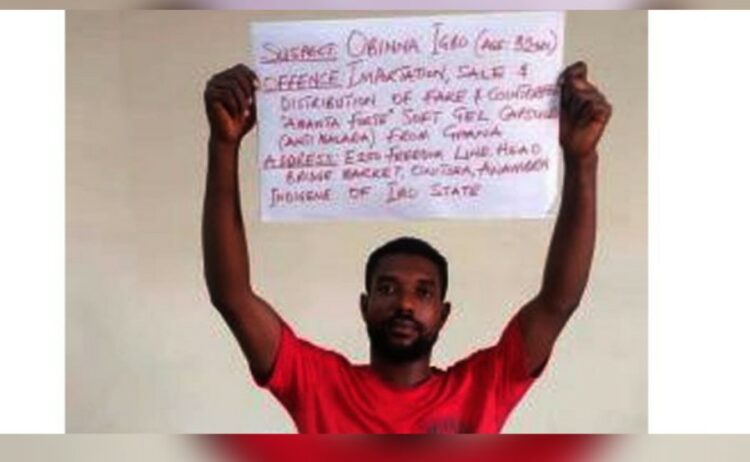 SUSPECT: OBINNA IGBO (AGE: 33
OFFENCE IMARTATION, SALE &
DISTRIBUTION OF FAKE & COUNTERFEIT
"AMANTA FORTE" SOFT GEL CAPSULE
(ANTI MALARIA) FROM GHANA
ADDRESS: E250 FREEDOM LINE, HEAD
BRIDGE MARKET, ONITSHA, ANAMBRA
INDIGENE OF IMO STATE